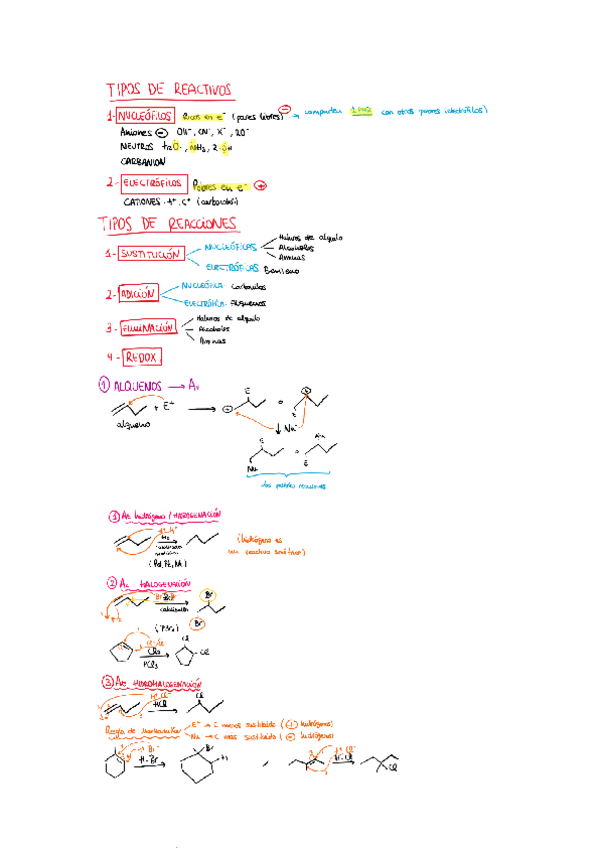 TIPOS DE REACTIVOS
1- NUCLEÓFILOS Ricos en e⁻ (pares libres) → comparten con otros (electrófilos)
Aniones ⊖ OH⁻, CN⁻, X⁻, RO⁻
NEUTROS
CARBANION
2- ELECTRÓFILOS Pobres en e⁻ ⊕
CATIONES
TIPOS DE REACCIONES
1- SUSTITUCIÓN NUCLEÓFILAS Haluros de alquilo
Alcoholes
Aminas
ELECTRÓFILAS Benceno
2- ADICIÓN NUCLEÓFILA Carbonilos
ELECTRÓFILA Alquenos
3- ELIMINACIÓN Haluros de alquilo
Alcoholes
Aminas
4- REDOX
① ALQUENOS → AE
+ E⁺
alqueno
Nu⁻
① AE hidrógeno / HIDROGENACIÓN
H₂
catalizador
(Pd, Pt, Ni)
(hidrógeno es
un reactivo
② AE HALOGENACIÓN
Br
catalizador
Br
Cl
Cl
③ AE HIDROHALOGENACIÓN
HCl
Cl
Regla de Markovnikov E⁺ → C menos sustituido (⊕ hidrógenos)
Nu → C más sustituido (⊖ hidrógenos)
H-Br
Br
H
H-Cl
Cl